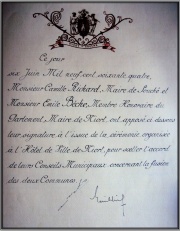 Ce jour
six Juin Mil neuf cent soixante quatre,
Monsieur Camille Richard, Maire de Souché et
Monsieur Emile Bèche, Membre Honoraire du
Parlement, Maire de Niort, ont apposé ci dessous
leur signature à l'issue de la cérémonie organisée
à l'Hôtel de Ville de Niort, pour sceller l'accord
de leurs Conseils Municipaux concernant la fusion
des deux Communes.